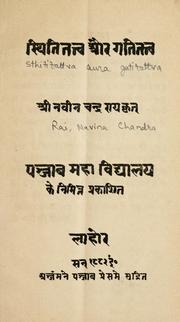 स्थितितत्व और गतितत्व
Sthititattva aura gatitattva
श्री नवीन चन्द्र रायकृत
Rai, Navina Chandra
पञ्जाब महा विद्यालय
के निमित्त प्रकाशित
लाहोर
सन १८८२ ई०
अञ्जुमने पञ्जाब प्रेसमे मुद्रित